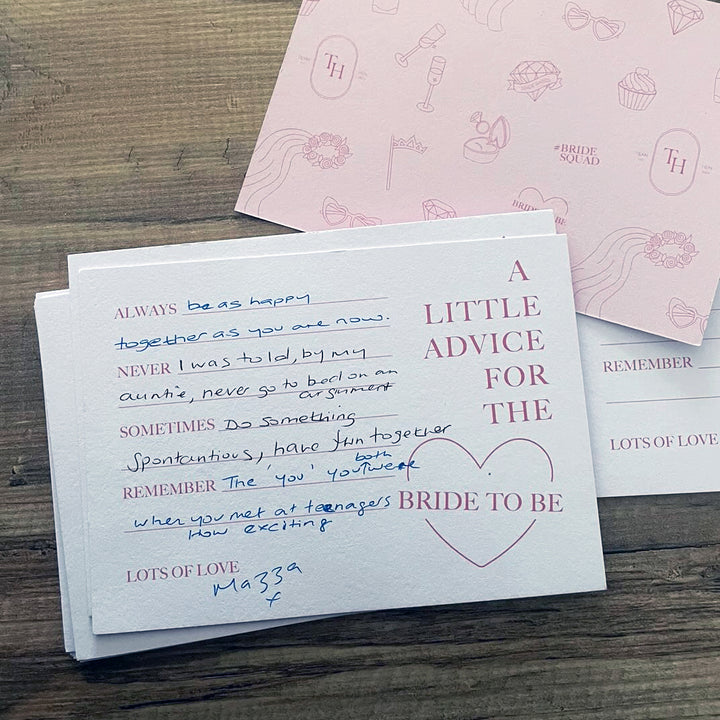 TH
TH
#BRIDE
SQUAD
A
LITTLE
ADVICE
FOR
THE
BRIDE TO BE
ALWAYS be as happy
together as you are now.
NEVER I was told, by my
auntie, never go to bed on an
argument
SOMETIMES Do something
Spontantious, have fun together
REMEMBER The 'you' you both were
when you met at teenagers
How exciting
LOTS OF LOVE
Mazza
x
REMEMBER
LOTS OF LOVE